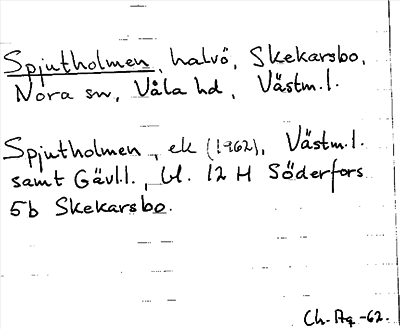 Spjutholmen, halvö, Skekarsbo,
Nora sn, Våla hd, Västm.l.
Spjutholmen, ek (1962), Västm.l.
samt Gävl.l., bl. 12 H Söderfors
5b Skekarsbo.
Ch. Ag. -62.